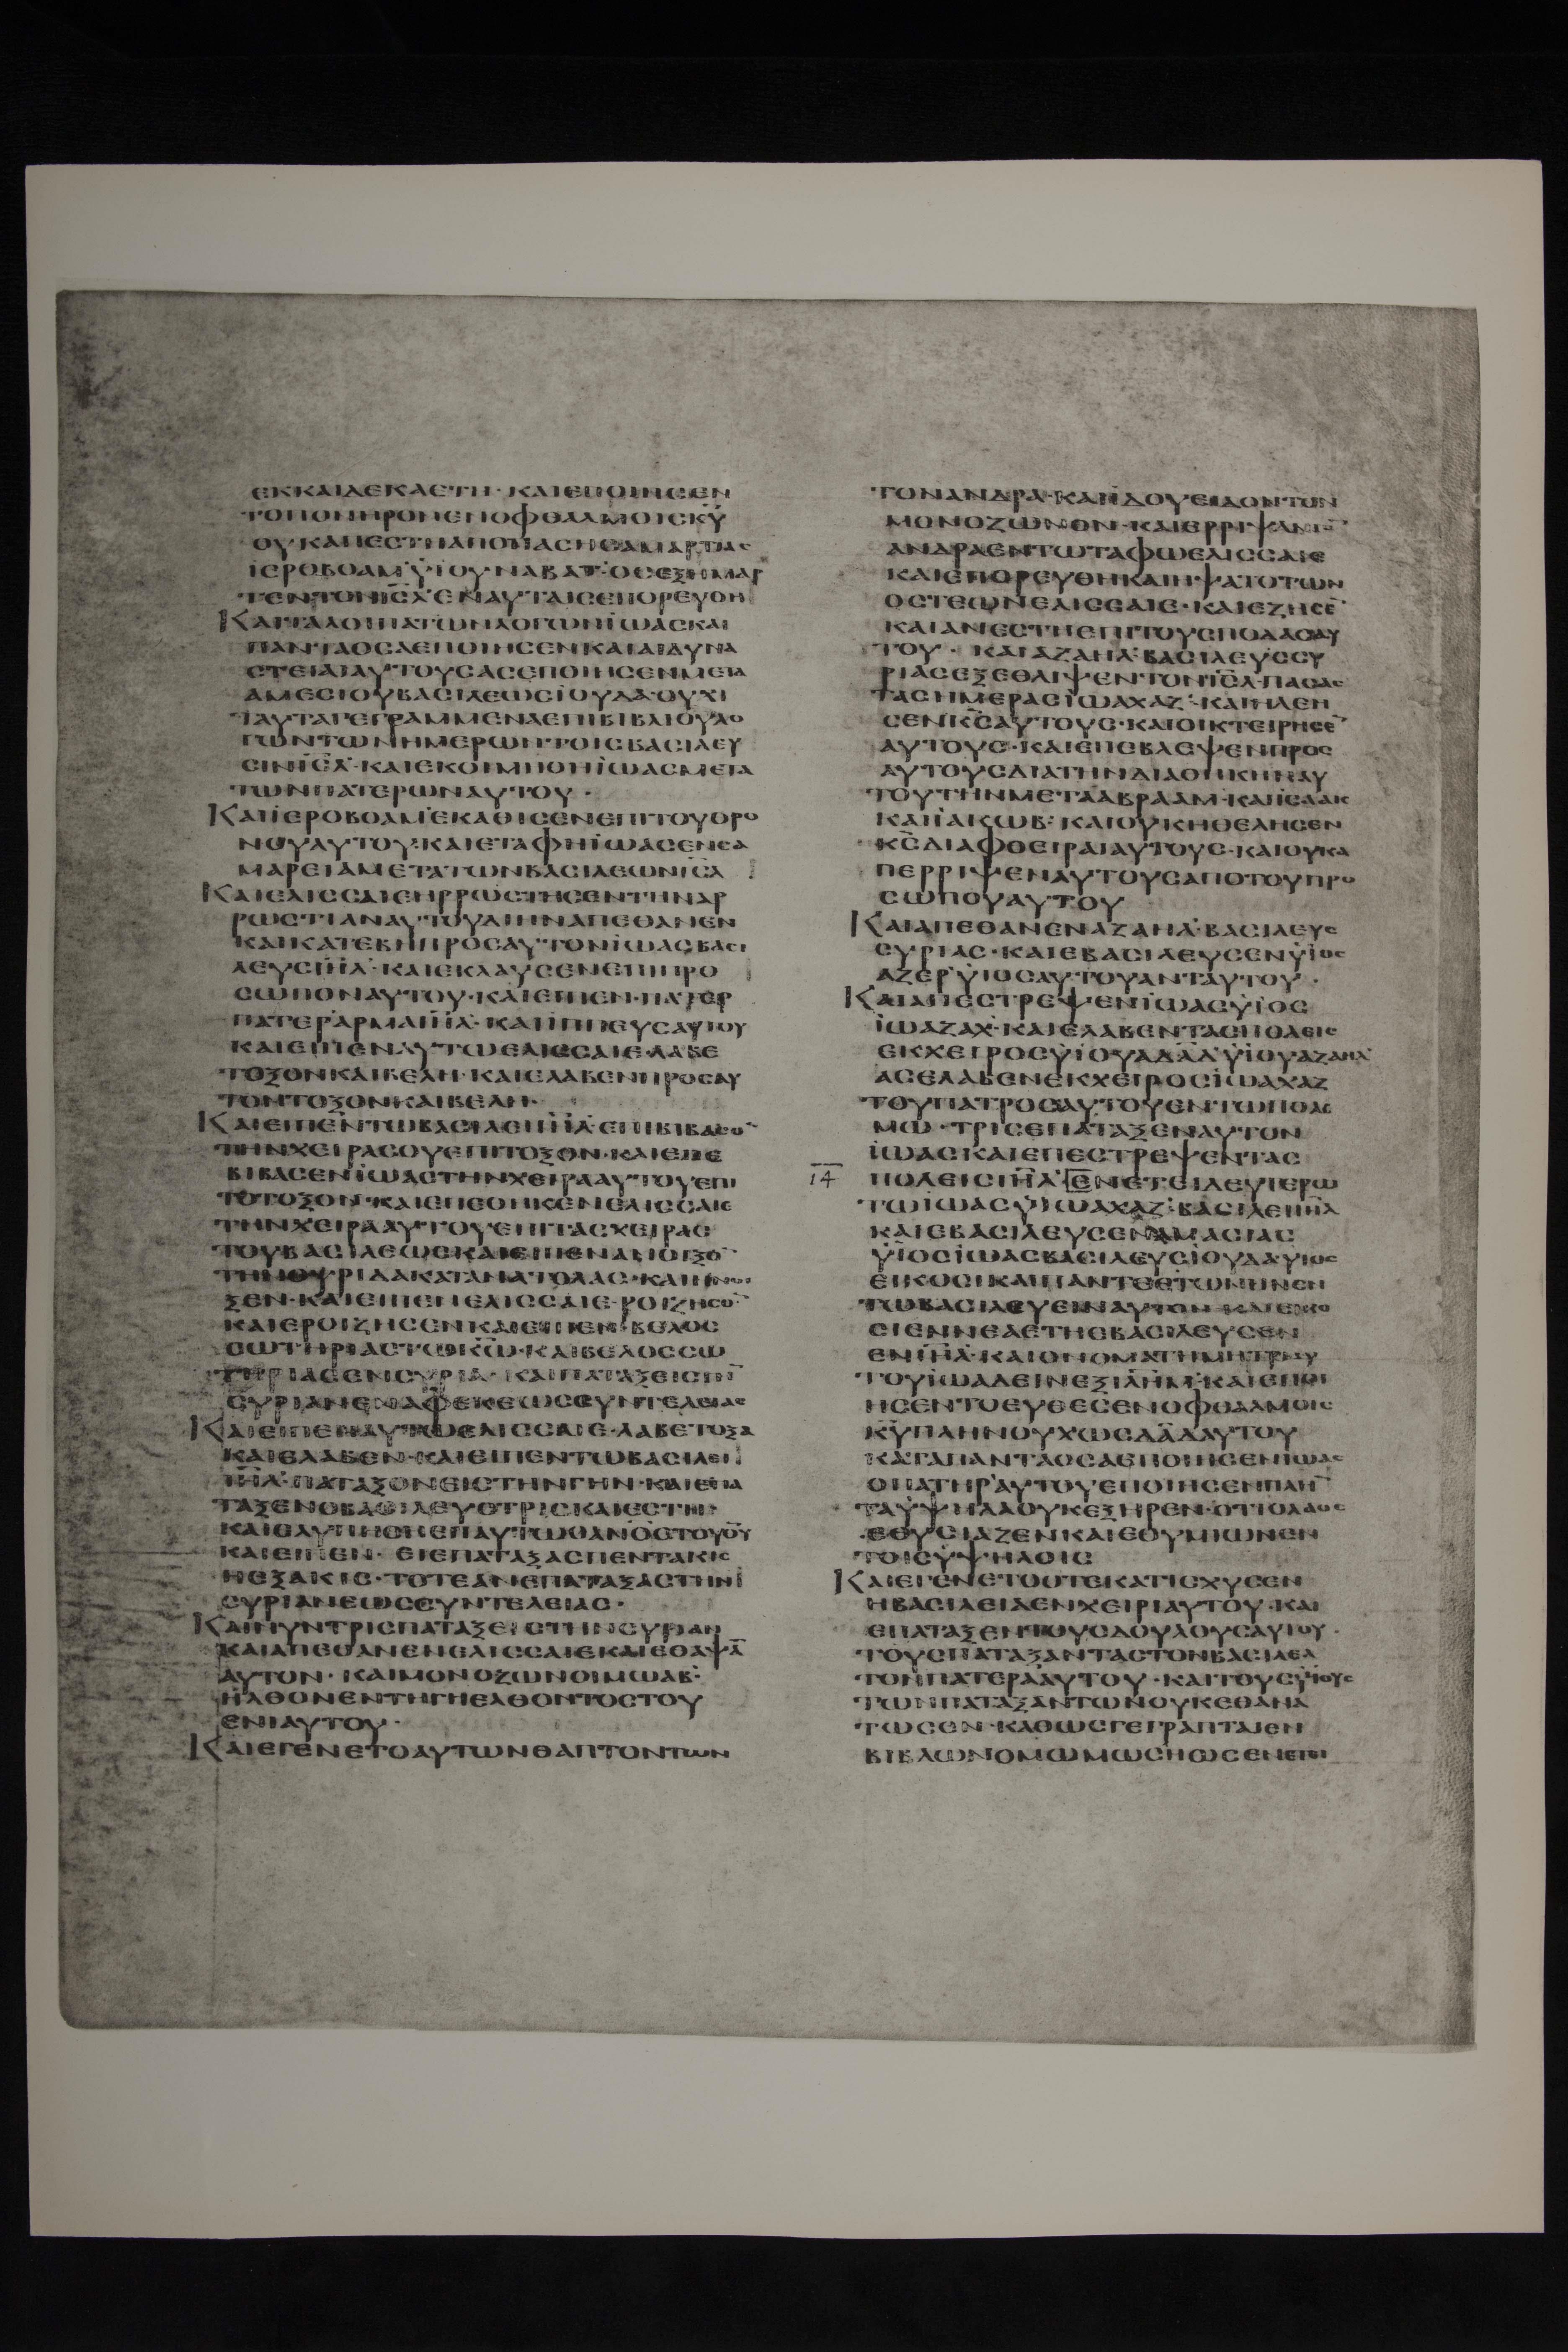 ΕΚΚΑΙΔΕΚΑΕΤΗ · ΚΑΙΕΠΟΙΗΣΕΝ
ΤΟΠΟΝΗΡΟΝΕΝΟΦΘΑΛΜΟΙΣΚΥ̅
ΟΥΚΑΠΕΣΤΗΑΠΟΠΑΣΗΣΑΜΑΡΤΙΑΣ
ΪΕΡΟΒΟΑΜ ΫΙΟΥΝΑΒΑΤ · ΟΣΕΞΗΜΑΡ
ΤΕΝΤΟΝΙΣ̅Λ ΕΝΑΥΤΑΙΣΕΠΟΡΕΥΘΗ
ΚΑΙΤΑΛΟΙΠΑΤΩΝΛΟΓΩΝΪΩΑΣΚΑΙ
ΠΑΝΤΑΟΣΑΕΠΟΙΗΣΕΝΚΑΙΑΙΔΥΝΑ
ΣΤΕΙΑΙΑΥΤΟΥΣΑΣΕΠΟΙΗΣΕΝΜΕΤΑ
ΑΜΕΣΙΟΥΒΑΣΙΛΕΩΣΪΟΥΔΑ · ΟΥΧΙ
ΤΑΥΤΑΓΕΓΡΑΜΜΕΝΑΕΠΙΒΙΒΛΙΟΥΛΟ
ΓΩΝΤΩΝΗΜΕΡΩΝΤΟΙΣΒΑΣΙΛΕΥ
ΣΙΝΙΣ̅Λ · ΚΑΙΕΚΟΙΜΗΘΗΪΩΑΣΜΕΤΑ
ΤΩΝΠΑΤΕΡΩΝΑΥΤΟΥ ·
ΚΑΙΪΕΡΟΒΟΑΜ ΕΚΑΘΙΣΕΝΕΠΙΤΟΥΘΡΟ
ΝΟΥΑΥΤΟΥ · ΚΑΙΕΤΑΦΗΪΩΑΣΕΝΣΑ
ΜΑΡΕΙΑΜΕΤΑΤΩΝΒΑΣΙΛΕΩΝΙΣ̅Λ
ΚΑΙΕΛΙΣΣΑΙΕΗΡΡΩΣΤΗΣΕΝΤΗΝΑΡ
ΡΩΣΤΙΑΝΑΥΤΟΥΔΙΗΝΑΠΕΘΑΝΕΝ
ΚΑΙΚΑΤΕΒΗΠΡΟΣΑΥΤΟΝΪΩΑΣΒΑΣΙ
ΛΕΥΣΙΗ̅Λ · ΚΑΙΕΚΛΑΥΣΕΝΕΠΙΠΡΟ
ΣΩΠΟΝΑΥΤΟΥ · ΚΑΙΕΙΠΕΝ · ΠΑΤΕΡ
ΠΑΤΕΡ ΑΡΜΑΙΗ̅Λ · ΚΑΙΪΠΠΕΥΣΑΥΤΟΥ
ΚΑΙΕΙΠΕΝΑΥΤΩΕΛΙΣΣΑΙΕ · ΛΑΒΕ
ΤΟΞΟΝΚΑΙΒΕΛΗ · ΚΑΙΕΛΑΒΕΝΠΡΟΣΑΥ
ΤΟΝΤΟΞΟΝΚΑΙΒΕΛΗ ·
ΚΑΙΕΙΠΕΝΤΩΒΑΣΙΛΕΙΙΗ̅Λ · ΕΠΙΒΙΒΑΣΟ̅
ΤΗΝΧΕΙΡΑΣΟΥΕΠΙΤΟΞΟΝ · ΚΑΙΕΠΕ
ΒΙΒΑΣΕΝΪΩΑΣΤΗΝΧΕΙΡΑΑΥΤΟΥΕΠΙ
ΤΟΤΟΞΟΝ · ΚΑΙΕΠΕΘΗΚΕΝΕΛΙΣΣΑΙΕ
ΤΗΝΧΕΙΡΑΑΥΤΟΥΕΠΙΤΑΣΧΕΙΡΑΣ
ΤΟΥΒΑΣΙΛΕΩΣΚΑΙΕΙΠΕΝΑΝΟΙΞΟ̅
ΤΗΝΘΥΡΙΔΑΚΑΤΑΝΑΤΟΛΑΣ · ΚΑΙΗΝΟΙ
ΞΕΝ · ΚΑΙΕΙΠΕΝΕΛΙΣΣΑΙΕ · ΡΟΙΖΗΣΟ̅
ΚΑΙΕΡΟΙΖΗΣΕΝΚΑΙΕΙΠΕΝ · ΒΕΛΟΣ
ΣΩΤΗΡΙΑΣΤΩΚΩ̅ · ΚΑΙΒΕΛΟΣΣΩ
ΤΗΡΙΑΣΕΝΣΥΡΙΑ · ΚΑΙΠΑΤΑΞΕΙΣΤΗ̅
ΣΥΡΙΑΝΕΝΑΦΕΚΕΩΣΣΥΝΤΕΛΕΙΑΣ
ΚΑΙΕΙΠΕΝΑΥΤΩΕΛΙΣΣΑΙΕ · ΛΑΒΕΤΟΞΑ
ΚΑΙΕΛΑΒΕΝ · ΚΑΙΕΙΠΕΝΤΩΒΑΣΙΛΕΙ
ΙΗ̅Λ · ΠΑΤΑΞΟΝΕΙΣΤΗΝΓΗΝ · ΚΑΙΕΠΑ
ΤΑΞΕΝΟΒΑΣΙΛΕΥΣΤΡΙΣΚΑΙΕΣΤΗ ·
ΚΑΙΕΛΥΠΗΘΗΕΠΑΥΤΩΟΑΝΟΣΤΟΥΘΥ̅
ΚΑΙΕΙΠΕΝ · ΕΙΕΠΑΤΑΞΑΣΠΕΝΤΑΚΙΣ
ΗΕΞΑΚΙΣ · ΤΟΤΕΑΝΕΠΑΤΑΞΑΣΤΗΝ
ΣΥΡΙΑΝΕΩΣΣΥΝΤΕΛΕΙΑΣ ·
ΚΑΙΝΥΝΤΡΙΣΠΑΤΑΞΕΙΣΤΗΝΣΥΡΙΑΝ
ΚΑΙΑΠΕΘΑΝΕΝΕΛΙΣΣΑΙΕΚΑΙΕΘΑΨΑ̅
ΑΥΤΟΝ · ΚΑΙΜΟΝΟΖΩΝΟΙΜΩΑΒ ·
ΗΛΘΟΝΕΝΤΗΓΗΕΛΘΟΝΤΟΣΤΟΥ
ΕΝΙΑΥΤΟΥ ·
ΚΑΙΕΓΕΝΕΤΟΑΥΤΩΝΘΑΠΤΟΝΤΩΝ
ΤΟΝΑΝΔΡΑ · ΚΑΙΪΔΟΥΕΙΔΟΝΤΟΝ
ΜΟΝΟΖΩΝΟΝ · ΚΑΙΕΡΡΙΨΑΝΤΟ̅
ΑΝΔΡΑΕΝΤΩΤΑΦΩΕΛΙΣΣΑΙΕ
ΚΑΙΕΠΟΡΕΥΘΗΚΑΙΗΨΑΤΟΤΩΝ
ΟΣΤΕΩΝΕΛΙΣΣΑΙΕ · ΚΑΙΕΖΗΣΕ̅
ΚΑΙΑΝΕΣΤΗΕΠΙΤΟΥΣΠΟΔΑΣΑΥ
ΤΟΥ · ΚΑΙΑΖΑΗΛ · ΒΑΣΙΛΕΥΣΣΥ
ΡΙΑΣΕΞΕΘΛΙΨΕΝΤΟΝΙΣ̅Λ · ΠΑΣΑΣ
ΤΑΣΗΜΕΡΑΣΪΩΑΧΑΖ · ΚΑΙΗΛΕΗ
ΣΕΝΚ̅ΣΑΥΤΟΥΣ · ΚΑΙΟΙΚΤΕΙΡΗΣΕ̅
ΑΥΤΟΥΣ · ΚΑΙΕΠΕΒΛΕΨΕΝΠΡΟΣ
ΑΥΤΟΥΣΔΙΑΤΗΝΔΙΑΘΗΚΗΝΑΥ
ΤΟΥΤΗΝΜΕΤΑΑΒΡΑΑΜ · ΚΑΙΪΣΑΑΚ
ΚΑΙΪΑΚΩΒ · ΚΑΙΟΥΚΗΘΕΛΗΣΕΝ
Κ̅ΣΔΙΑΦΘΕΙΡΑΙΑΥΤΟΥΣ · ΚΑΙΟΥΚΑ
ΠΕΡΡΙΨΕΝΑΥΤΟΥΣΑΠΟΤΟΥΠΡΟ
ΣΩΠΟΥΑΥΤΟΥ
ΚΑΙΑΠΕΘΑΝΕΝΑΖΑΗΛ · ΒΑΣΙΛΕΥΣ
ΣΥΡΙΑΣ · ΚΑΙΕΒΑΣΙΛΕΥΣΕΝΫΙΟΣ
ΑΖΕΡ ΫΙΟΣΑΥΤΟΥΑΝΤΑΥΤΟΥ ·
ΚΑΙΑΠΕΣΤΡΕΨΕΝΪΩΑΣΫΙΟΣ
ΪΩΑΖΑΧ · ΚΑΙΕΛΑΒΕΝΤΑΣΠΟΛΕΙΣ
ΕΚΧΕΙΡΟΣΫΙΟΥΑΔ̅Α̅Δ ΫΙΟΥΑΖΑΗΛ
ΑΣΕΛΑΒΕΝΕΚΧΕΙΡΟΣΪΩΑΧΑΖ
ΤΟΥΠΑΤΡΟΣΑΥΤΟΥΕΝΤΩΠΟΛΕ
ΜΩ · ΤΡΙΣΕΠΑΤΑΞΕΝΑΥΤΟΝ
ΪΩΑΣΚΑΙΕΠΕΣΤΡΕΨΕΝΤΑΣ
14 ΠΟΛΕΙΣΙΗ̅Λ · ΕΝΕΤΕΙΔΕΥΤΕΡΩ
ΤΩΪΩΑΣΫΙΩΑΧΑΖ · ΒΑΣΙΛΕΙΙΗ̅Λ
ΚΑΙΕΒΑΣΙΛΕΥΣΕΝΑΜΑΣΙΑΣ
ΫΙΟΣΪΩΑΣΒΑΣΙΛΕΥΣΪΟΥΔΑ · ΥΙΟΣ
ΕΙΚΟΣΙΚΑΙΠΑΝΤΕΕΤΩΝΗΝΕΝ
ΤΩΒΑΣΙΛΕΥΕΙΝΑΥΤΟΝ · ΚΑΙΕΙΚΟ
ΣΙΕΝΝΕΑΕΤΗΕΒΑΣΙΛΕΥΣΕΝ
ΕΝΙΗ̅Λ · ΚΑΙΟΝΟΜΑΤΗΜΗΤΡΙΑΥ
ΤΟΥΪΩΑΔΕΙΝΕΞΙΛ̅Η̅Μ · ΚΑΙΕΠΟΙ
ΗΣΕΝΤΟΕΥΘΕΣΕΝΟΦΘΑΛΜΟΙΣ
ΚΥ̅ΠΛΗΝΟΥΧΩΣΔ̅Α̅Δ ΑΥΤΟΥ
ΚΑΤΑΠΑΝΤΑΟΣΑΕΠΟΙΗΣΕΝΪΩΑΣ
ΟΠΑΤΗΡ ΑΥΤΟΥΕΠΟΙΗΣΕΝΠΛΗ̅
ΤΑΫΨΗΛΑΟΥΚΕΞΗΡΕΝ · ΟΤΙΟΛΑΟΣ
ΕΘΥΣΙΑΖΕΝΚΑΙΕΘΥΜΙΩΝΕΝ
ΤΟΙΣΫΨΗΛΟΙΣ
ΚΑΙΕΓΕΝΕΤΟΟΤΕΚΑΤΙΣΧΥΣΕΝ
ΗΒΑΣΙΛΕΙΑΕΝΧΕΙΡΙΑΥΤΟΥ · ΚΑΙ
ΕΠΑΤΑΞΕΝΤΟΥΣΔΟΥΛΟΥΣΑΥΤΟΥ ·
ΤΟΥΣΠΑΤΑΞΑΝΤΑΣΤΟΝΒΑΣΙΛΕΑ
ΤΟΝΠΑΤΕΡΑΑΥΤΟΥ · ΚΑΙΤΟΥΣΫΙΟΥΣ
ΤΩΝΠΑΤΑΞΑΝΤΩΝΟΥΚΕΘΑΝΑ
ΤΩΣΕΝ · ΚΑΘΩΣΓΕΓΡΑΠΤΑΙΕΝ
ΒΙΒΛΩΝΟΜΩΜΩΣΗΩΣΕΝΕΤΕΙ